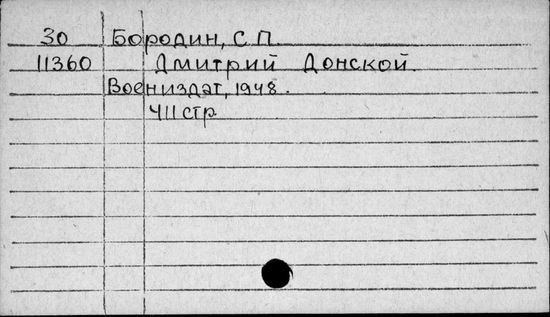 30 Бородин, С.П.
11360 Дмитрий Донской.
Воениздат, 1948.
411 стр